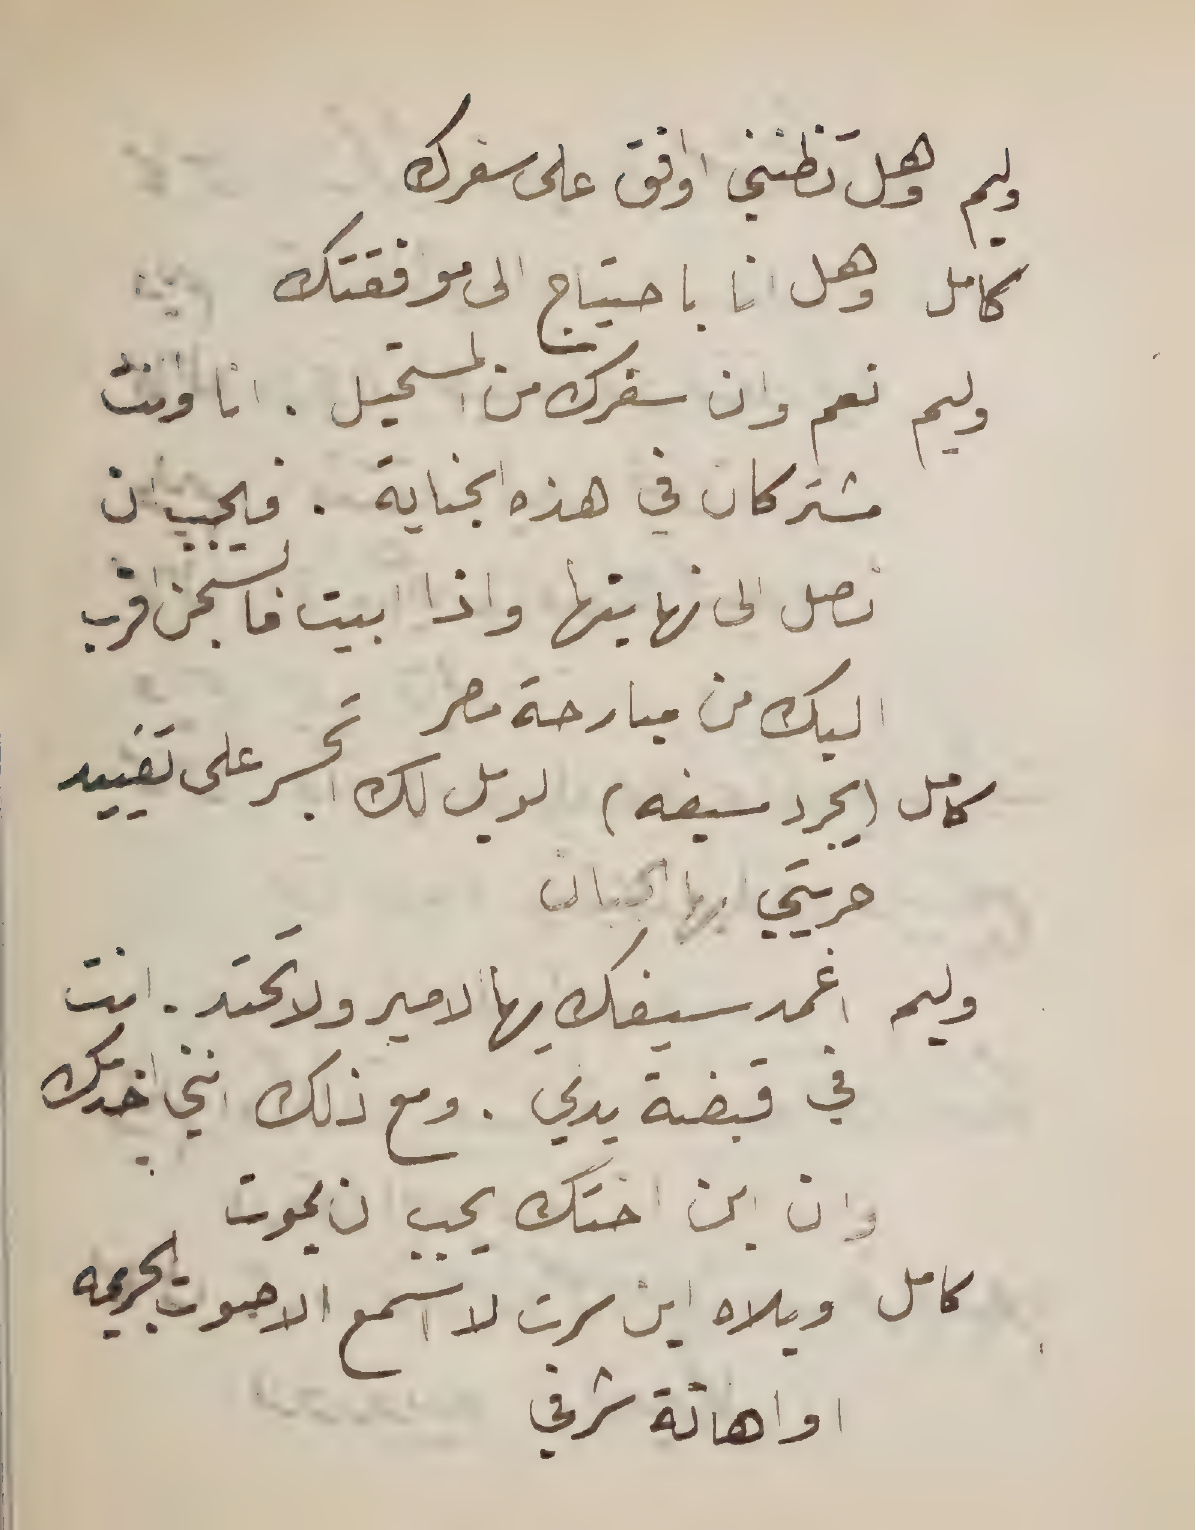 وليم وهل تظنني اوافق على سفرك
كامل وهل انا باحتياج الى موافقتك
وليم نعم وان سفرك من المستحيل . انا وانت
مشتركان في هذه الجناية . فيجب ان
نصل الى نهايتها واذا ابيت فالسجن اقرب
اليك من مبارحة مصر
كامل (يجرد سيفه) الويل لك اتجسر على تقييد
حريتي ايها الجبان
وليم اغمد سيفك ايها الامير ولا تحتد . انت
في قبضة يدي . ومع ذلك انني اخدمك
وان ابن اختك يجب ان يموت
كامل ويلاه اين سرت لا اسمع الا صوت الجريمه
او اهانة شرفي